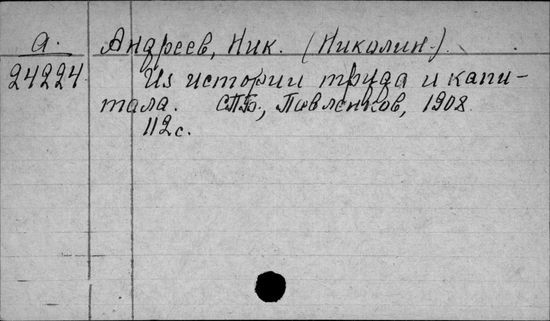 а. Андреев, Ник. (Николин.).
24224 Из истории труда и капи-
тала. СПБ., Павленков, 1908.
112 с.